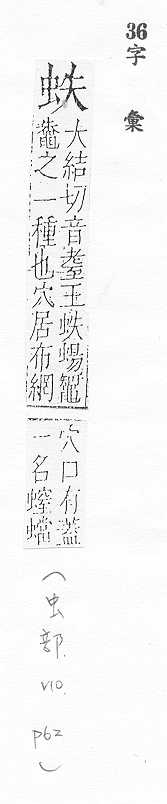 36字彙
蛈
大結切音耋王蛈蜴鼅
鼄之一種也穴居布網
穴口有蓋
一名螲蟷
(虫部. V10. P62)